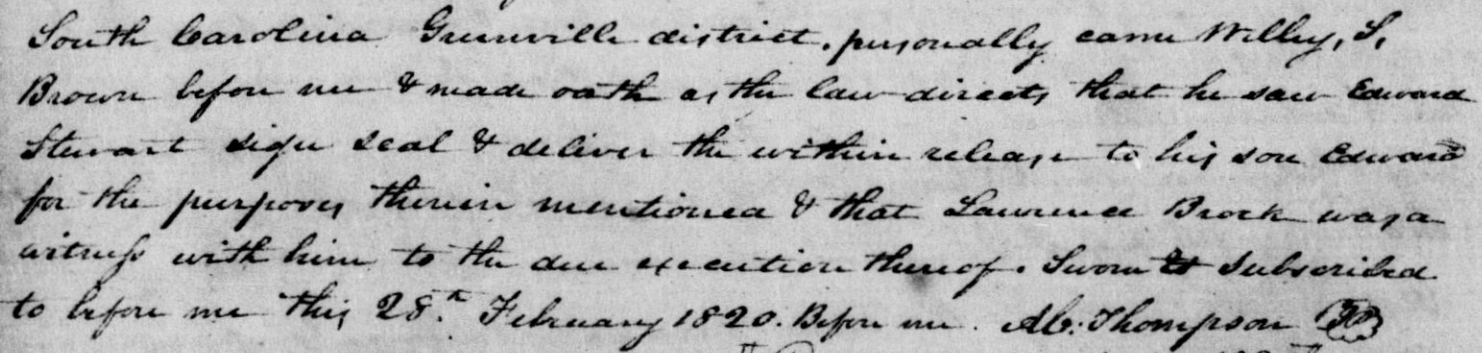 South Carolina Greenville district. personally came Willey, S,
Brown before me & made oath as the law directs that he saw Edward
Stewart sign seal & deliver the within release to his son Edward
for the purposes therein mentioned & that Lawrence Brock was a
witness with him to the due execution thereof. Sworn & subscribed
to before me this 28th February 1820. Before me. Ab: Thompson